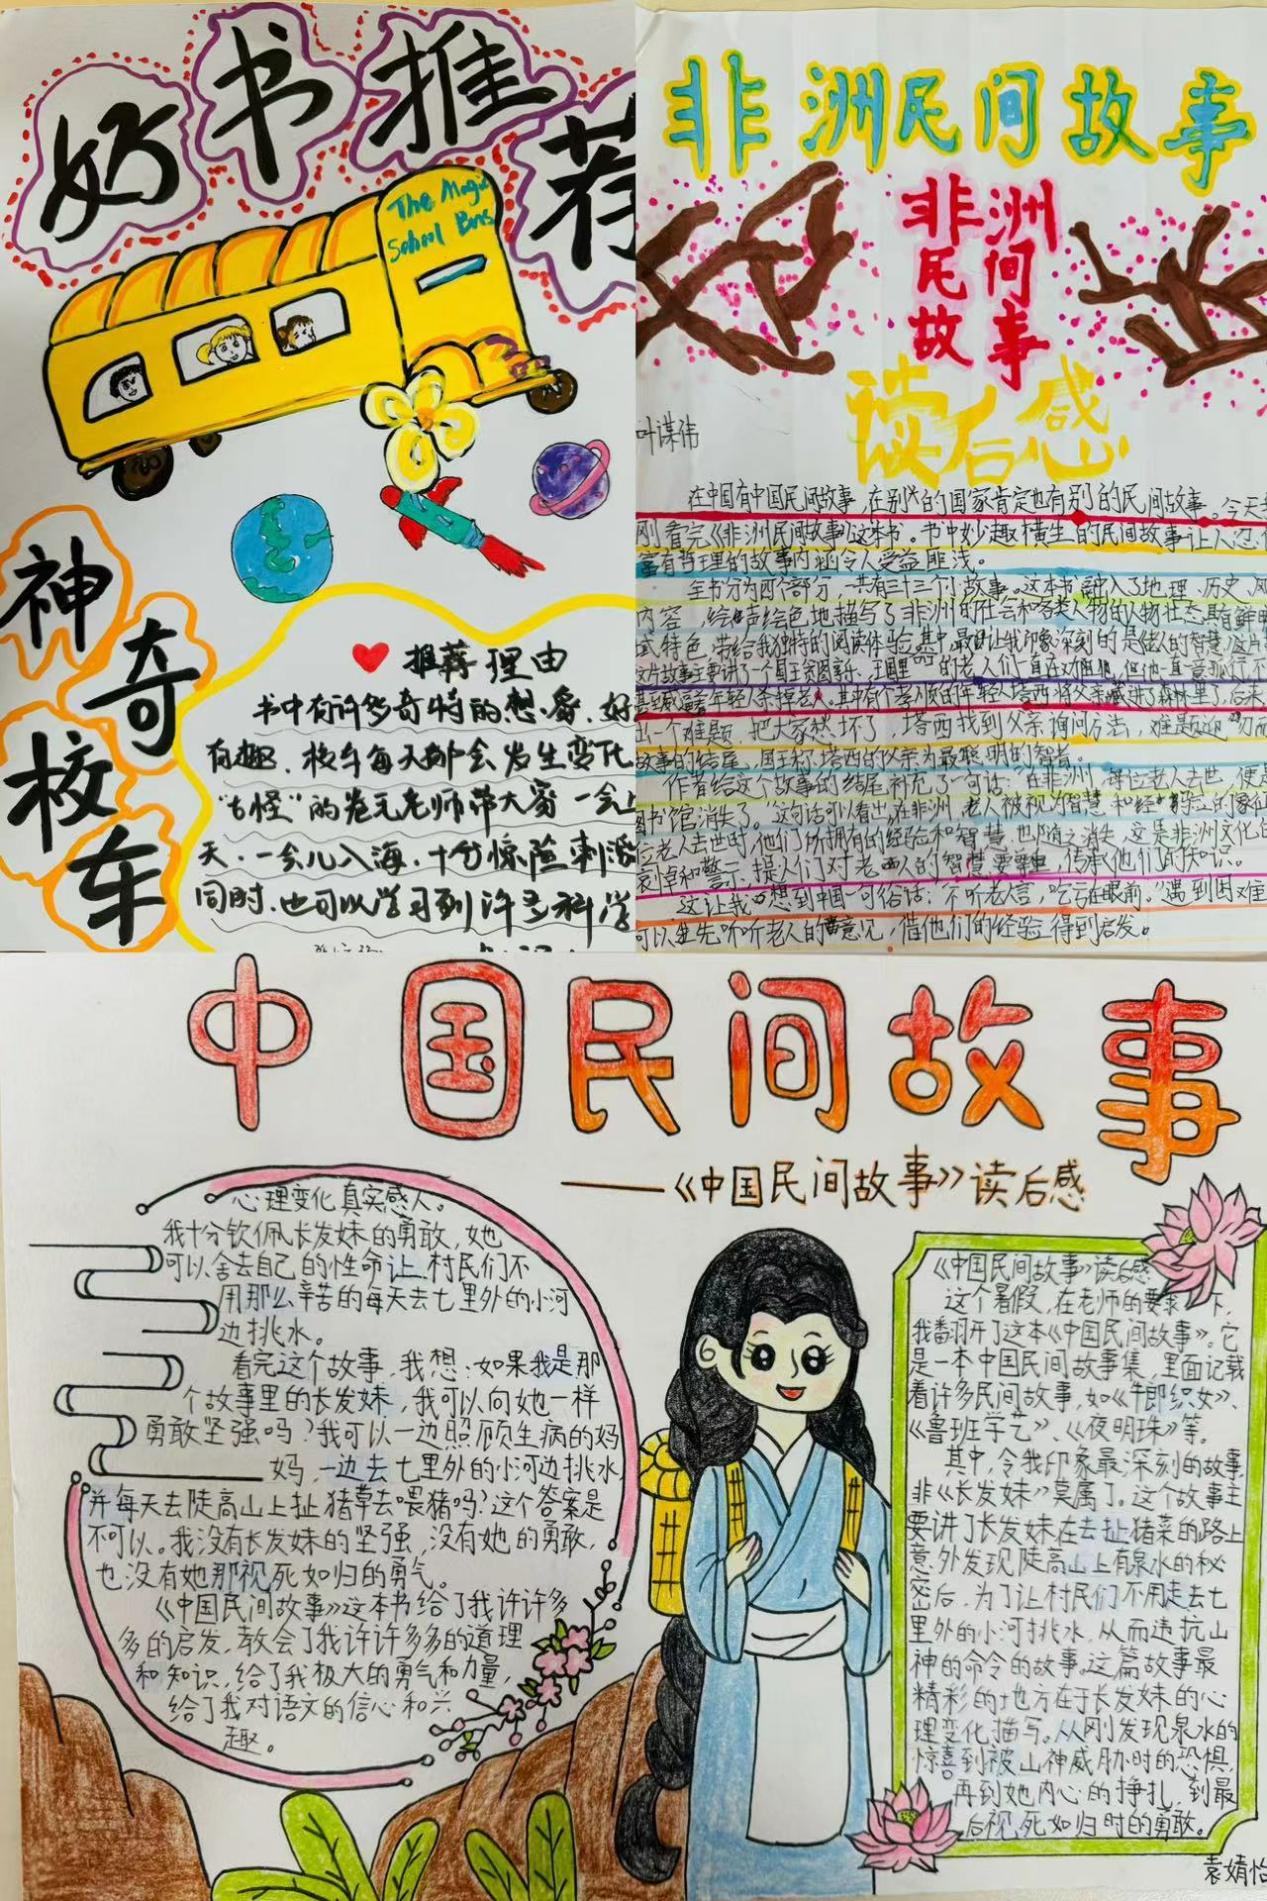 好书推荐
The Magic
School Bus
神奇校车
推荐理由
书中有许多奇特的想象,好
有趣,校车每天都会发生变化
"古怪"的卷毛老师带大家一会上
天,一会儿入海,十分惊险刺激
同时,也可以学习到许多科学
非洲民间故事
非洲
民间
故事
读后感
叶谋伟
在中国有中国民间故事,在别的国家肯定也有别的民间故事。今天我
刚看完《非洲民间故事》这本书。书中妙趣横生的民间故事让人忍
富有哲理的故事内涵令人受益匪浅。
全书分为四个部分,共有三十三个小故事。这本书融入了地理、历史、风
内容,绘声绘色地描写了非洲的社会和各类人物的人物状态,具有鲜明
式特色,带给我独特的阅读体验。其中最让我印象深刻的是《老人的智慧》这片
这片故事主要讲了一个国王贪图享乐,王国里的老人们一直在劝阻他,但他一直意孤行不
甚至威逼着年轻人杀掉老人。其中有个孝顺的年轻人塔西将父亲藏进了森林里了,后来
出一个难题,把大家愁坏了,塔西找到父亲询问方法,难题迎刃而
故事的结尾,国王称塔西的父亲为最聪明的智者。
作者给这个故事的结尾补充了一句话:"在非洲,每位老人去世,便是
图书馆消失了。"这句话可以看出,在非洲,老人被视为智慧和经验的象征
位老人去世时,他们所拥有的经验和智慧也随之消失,这是非洲文化的
哀悼和警示,提人们对老人的智慧要重,传承他们的知识。
这让我想到中国一句俗话:"不听老人言,吃亏在眼前。"遇到困难
可以先听听老人的意见,借他们的经验得到启发。
中国民间故事
——《中国民间故事》读后感
心理变化真实感人。
我十分钦佩长发妹的勇敢,她
可以舍去自己的性命让村民们不
用那么辛苦的每天去七里外的小河
边挑水。
看完这个故事,我想:如果我是那
个故事里的长发妹,我可以向她一样
勇敢坚强吗?我可以一边照顾生病的妈
妈,一边去七里外的小河边挑水,
并每天去陡高山上扯猪草去喂猪吗?这个答案是
不可以。我没有长发妹的坚强,没有她的勇敢,
也没有她那视死如归的勇气。
《中国民间故事》这本书给了我许许多
多的启发,教会了我许许多多的道理
和知识,给了我极大的勇气和力量,
给了我对语文的信心和兴
趣。
《中国民间故事》读后感
这个暑假,在老师的要求下,
我翻开了这本《中国民间故事》。它
是一本中国民间故事集,里面记载
着许多民间故事,如《牛郎织女》、
《鲁班学艺》、《夜明珠》等。
其中,令我印象最深刻的故事,
非《长发妹》莫属了。这个故事主
要讲了长发妹在去扯猪菜的路上
意外发现陡高山上有泉水的秘
密后,为了让村民们不用走去七
里外的小河挑水,从而违抗山
神的命令的故事。这篇故事最
精彩的地方在于长发妹的心
理变化描写。从刚发现泉水的
惊喜到被山神威胁时的恐惧,
再到她内心的挣扎,到最
后视死如归时的勇敢。
袁婧怡